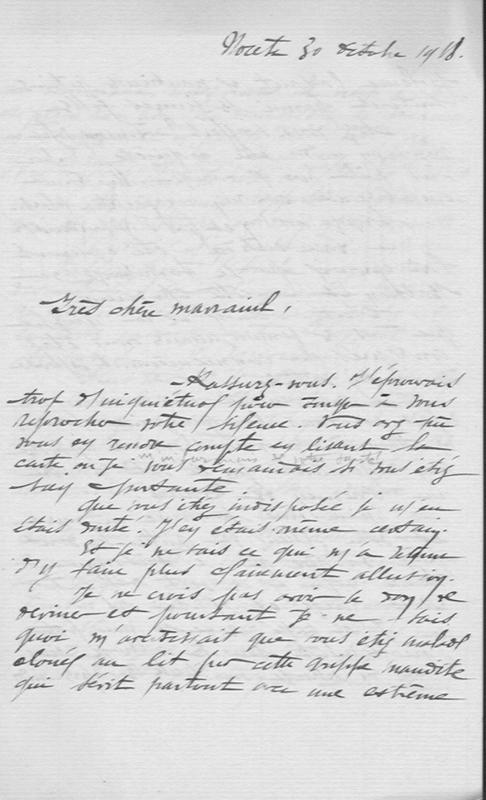 30 octobre 1918.
Très chère marraine,
Rassurez-vous. J'éprouvais
trop d'inquiétude pour songer à vous
reprocher votre silence. Vous avez pu
vous en rendre compte en lisant la
carte où je vous demandais si vous étiez
bien portante
Que vous étiez indisposée je m'en
étais douté. J'en étais même certain.
Et je ne sais ce qui m'a
d'y faire plus clairement allusion.
Je ne crois pas avoir le don de
deviner et pourtant je ne sais
quoi m'avertissait que vous étiez malade
clouée au lit par cette grippe maudite
qui sévit partout avec une extrême